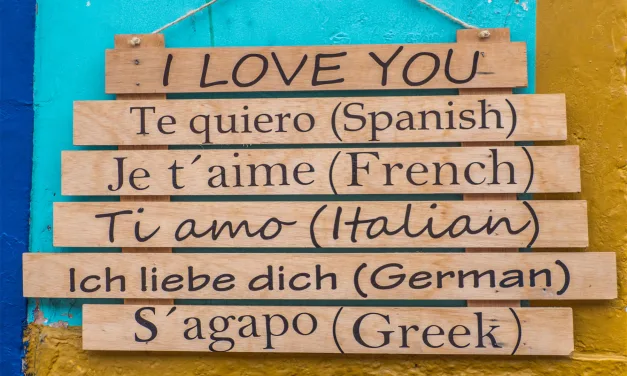 I LOVE YOU
Te quiero (Spanish)
Je t´aime (French)
Ti amo (Italian)
Ich liebe dich (German)
S´agapo (Greek)